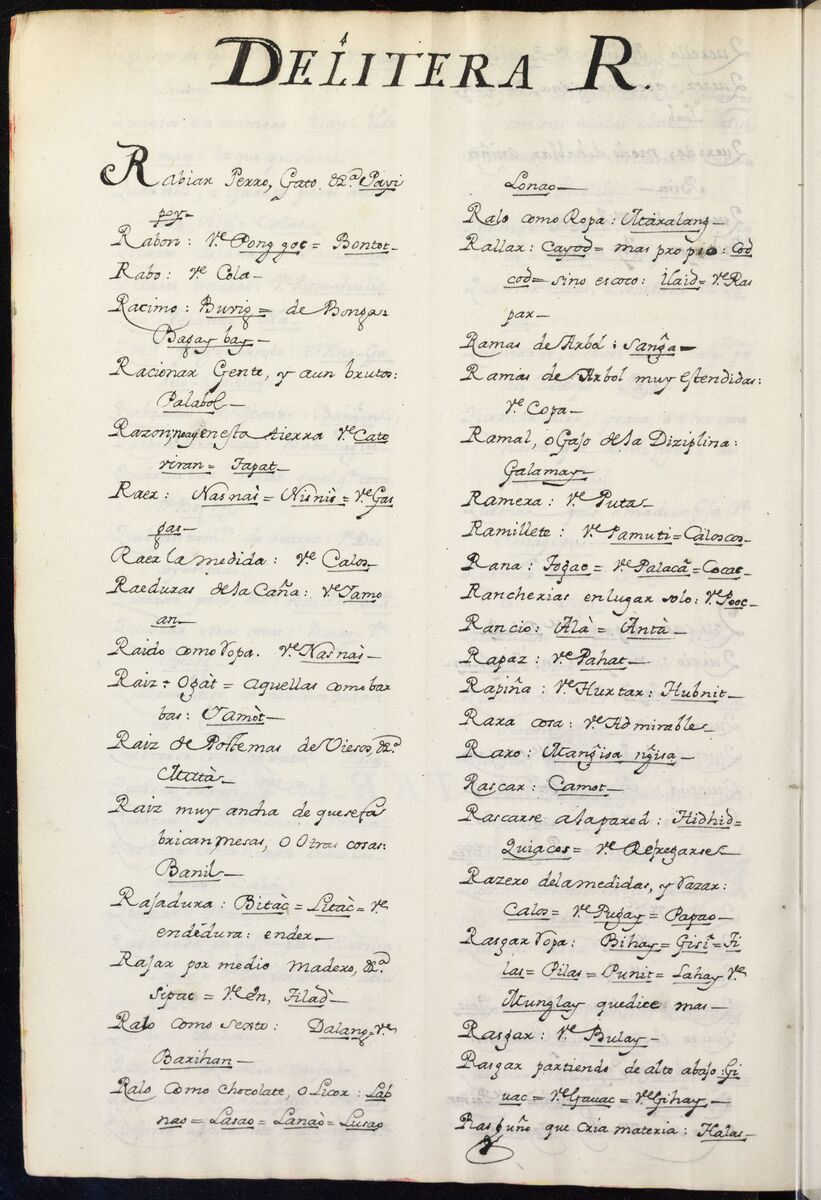 DE LITERA R.
Rabiar Perro, Gato. &c.ª Payi
poy—
Rabon: Vᵉ Pong got = Bontot—
Rabo: Vᵉ Cola—
Racimo: Buvig = de Bonga
Bagay bay—
Racionar Gente, y aun brutos:
Palabol—
Razon, no ay en esta tierra Vᵉ Cato
viran = Tapat—
Raer: Nasnas = Nisnis = Vᵉ Gas
gas—
Raer la medida: Vᵉ Calos—
Raeduras de la Caña: Vᵉ Yamo
an—
Raido como ropa. Vᵉ Nasnàs—
Raiz = Ogàt = aquellas como bar
bas: Yamòt—
Raiz de Postemas de Viesos, &c.ª
Atatàs—
Raiz muy ancha de que se fa
brican Mesas, o Otras cosas:
Banil—
Rajadura: Bitàc = Litàc = Vᵉ
endedura: ender—
Rajar por medio Madero, &c.ª
Sipac = Vᵉ En, Filad—
Ralo como sexto: Dalang = Vᵉ
Barihan—
Ralo como chocolate, o Licor: Lab
nao = Lasao = Lanaò = Lusao
Lonao—
Ralo como Ropa: Ataralang—
Rallar: Cayod = mas propio: Cod
cod = sino es coco: Ilaid = Vᵉ Ras
par—
Ramas de Arbol: Sanga—
Ramas de Arbol muy estendidas:
Vᵉ Copa—
Ramal, o Gajo de la Diziplina:
Galamay—
Ramera: Vᵉ Puta—
Ramillete: Vᵉ Pamuti = Caloscos—
Rana: Togac = Vᵉ Palacâ = Cocat—
Rancherias en lugar solo: Vᵉ Pooc—
Rancio: Alà = Antà—
Rapaz: Vᵉ Pahat—
Rapiña: Vᵉ Hurtar: Hubnit—
Rara cosa: Vᵉ Admirable—
Raro: Atangisa ngisa—
Rascar: Camot—
Rascarse a la pared: Hidhid =
Quiacos = Vᵉ Refregarse
Razero de la medidas, y razar:
Calos = Vᵉ Pugay = Papao—
Rasgar ropa: Bihay = Gisi = Ji
las = Pilas = Punit = Lahay Vᵉ
Atunglay que dice mas—
Rasgar: Vᵉ Bulay—
Rasgar partiendo de alto abajo: Gi
uac = Vᵉ Gauac = Vᵉ Gihay—
Rasguño que cria materia: Halas—